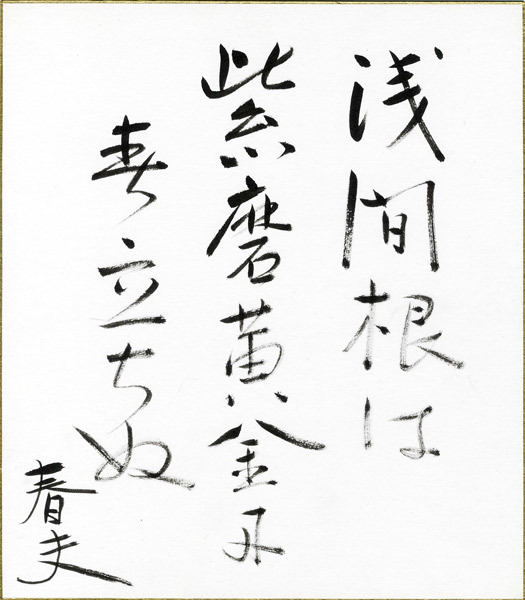 浅間根は
紫磨黄金に
春立ちぬ
春夫